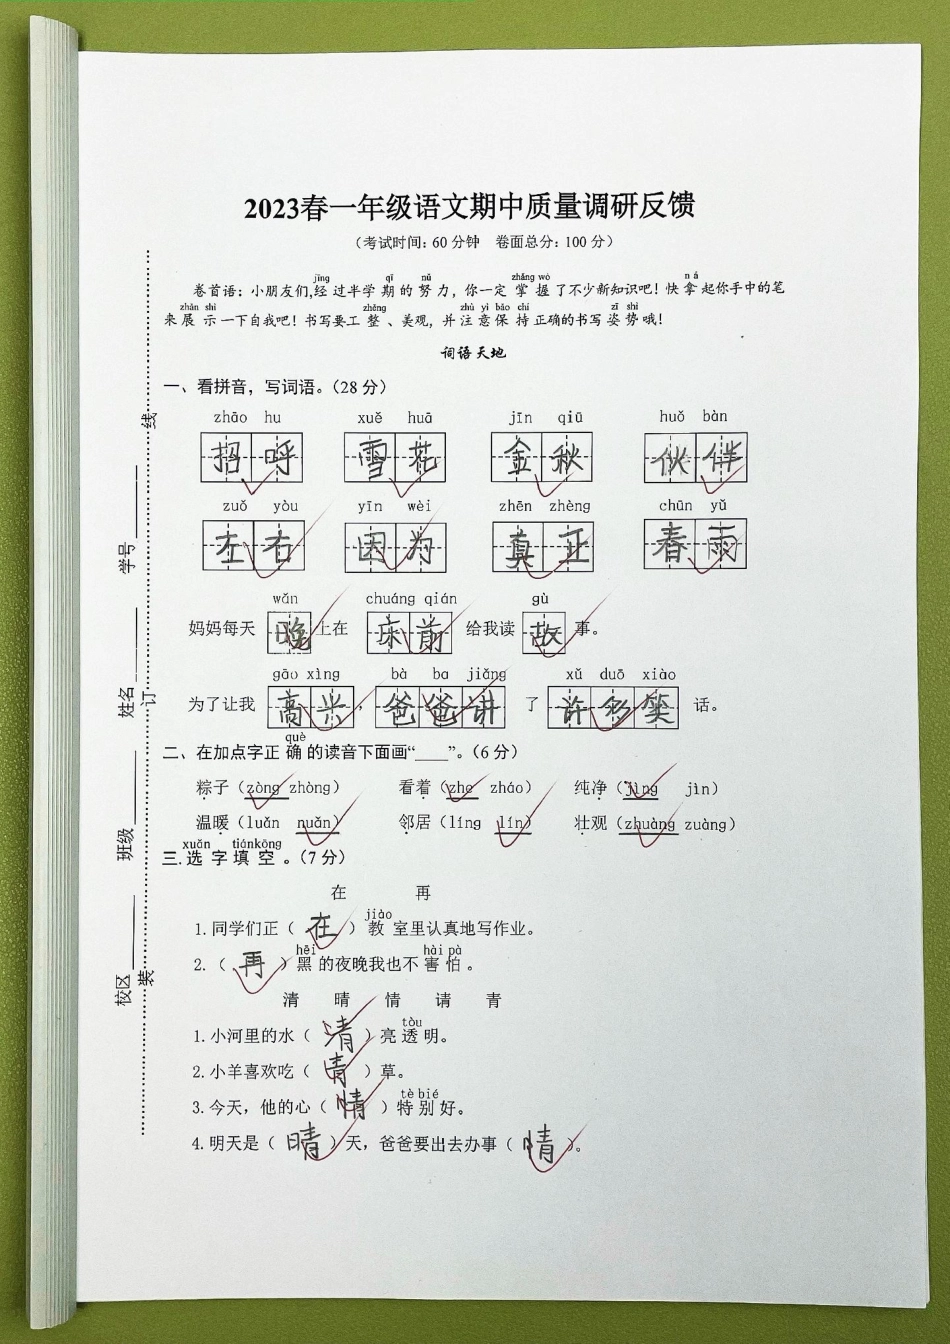 2023春一年级语文期中质量调研反馈
（考试时间：60分钟 卷面总分：100分）
jīng qī nǔ zhǎng wò ná
卷首语：小朋友们,经过半学期的努力，你一定掌握了不少新知识吧！快拿起你手中的笔
zhǎn shì zhěng zhù yì bǎo chí zī shì
来展示一下自我吧！书写要工整、美观，并注意保持正确的书写姿势哦！
词语天地
一、看拼音，写词语。（28分）
zhāo hu xuě huā jīn qiū huǒ bàn
招呼 雪花 金秋 伙伴
zuǒ yòu yīn wèi zhēn zhèng chūn yǔ
左右 因为 真正 春雨
wǎn chuáng qián gù
妈妈每天晚上在床前给我读故事。
gāo xìng bà ba jiǎng xǔ duō xiào
为了让我高兴，爸爸讲了许多笑话。
què
二、在加点字正确的读音下面画“____”。（6分）
粽子（zòng zhòng） 看着（zhe zháo） 纯净（jìng jìn）
温暖（luǎn nuǎn） 邻居（líng lín） 壮观（zhuàng zuàng）
xuǎn tiánkòng
三.选字填空。（7分）
在 再
jiào
1.同学们正（在）教室里认真地写作业。
hēi hài pà
2.（再）黑的夜晚我也不害怕。
清 晴 情 请 青
tòu
1.小河里的水（清）亮透明。
2.小羊喜欢吃（青）草。
tè bié
3.今天，他的心（情）特别好。
4.明天是（晴）天，爸爸要出去办事（情）。
校区
班级
姓名
学号
装
订
线